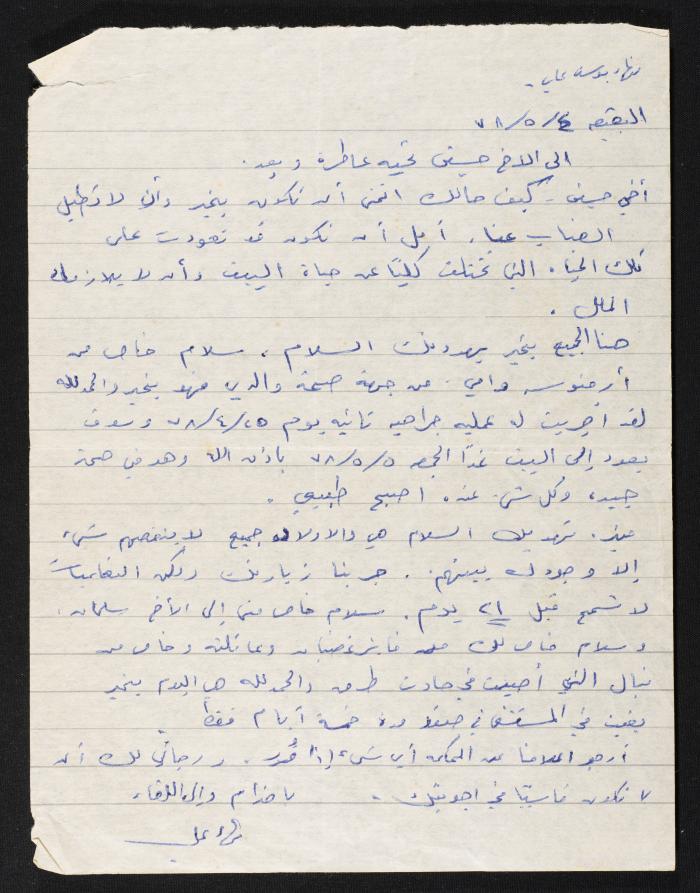 البقيعه ٧٨/٥/٤
الى الاخ حسين تحيه عاطرة وبعد.
أخي حسين - كيف حالك اتمنى أن تكون بخير وأن لا تطيل
الغياب عنا. أمل أن تكون قد تعودت على
تلك الحياه التي تختلف كليًا عن حياة البيت وأن لا يلازمك
الملل.
هنا الجميع بخير يهدونك السلام، سلام خاص من
وامي. من جهة صحة والدي فهو بخير والحمدلله
لقد اجريت له عمليه جراحيه ثانيه يوم ٧٨/٤/٢٥ وسوف
يعود إلى البيت غدًا الجمعه ٧٨/٥/٥ باذن الله وهو في صحة
جيده وكل شيء عنده اصبح طبيعي.
تهديك السلام هي والاولاد جميع لا ينقصهم شيء
إلا وجودك بينهم. جربنا زيارتك ولكن التعليمات
لا تسمح قبل ٢١ يوم. سلام خاص مني إلى الأخ سلمان.
وسلام خاص لك من فايز غضبان وعائلته وخاص من
نبال التي أصيبت في حادث طرق والحمدلله هي اليوم بخير
بقيت في المستشفى في صفد مدة خمسة أيام فقط.
أرجو اعلامنا عن المحكمه أي شيء إذا قُدر. ورجائي لك أن
لا تكون قاسيًا في اجوبتك. باحترام وإلى اللقاء
علي